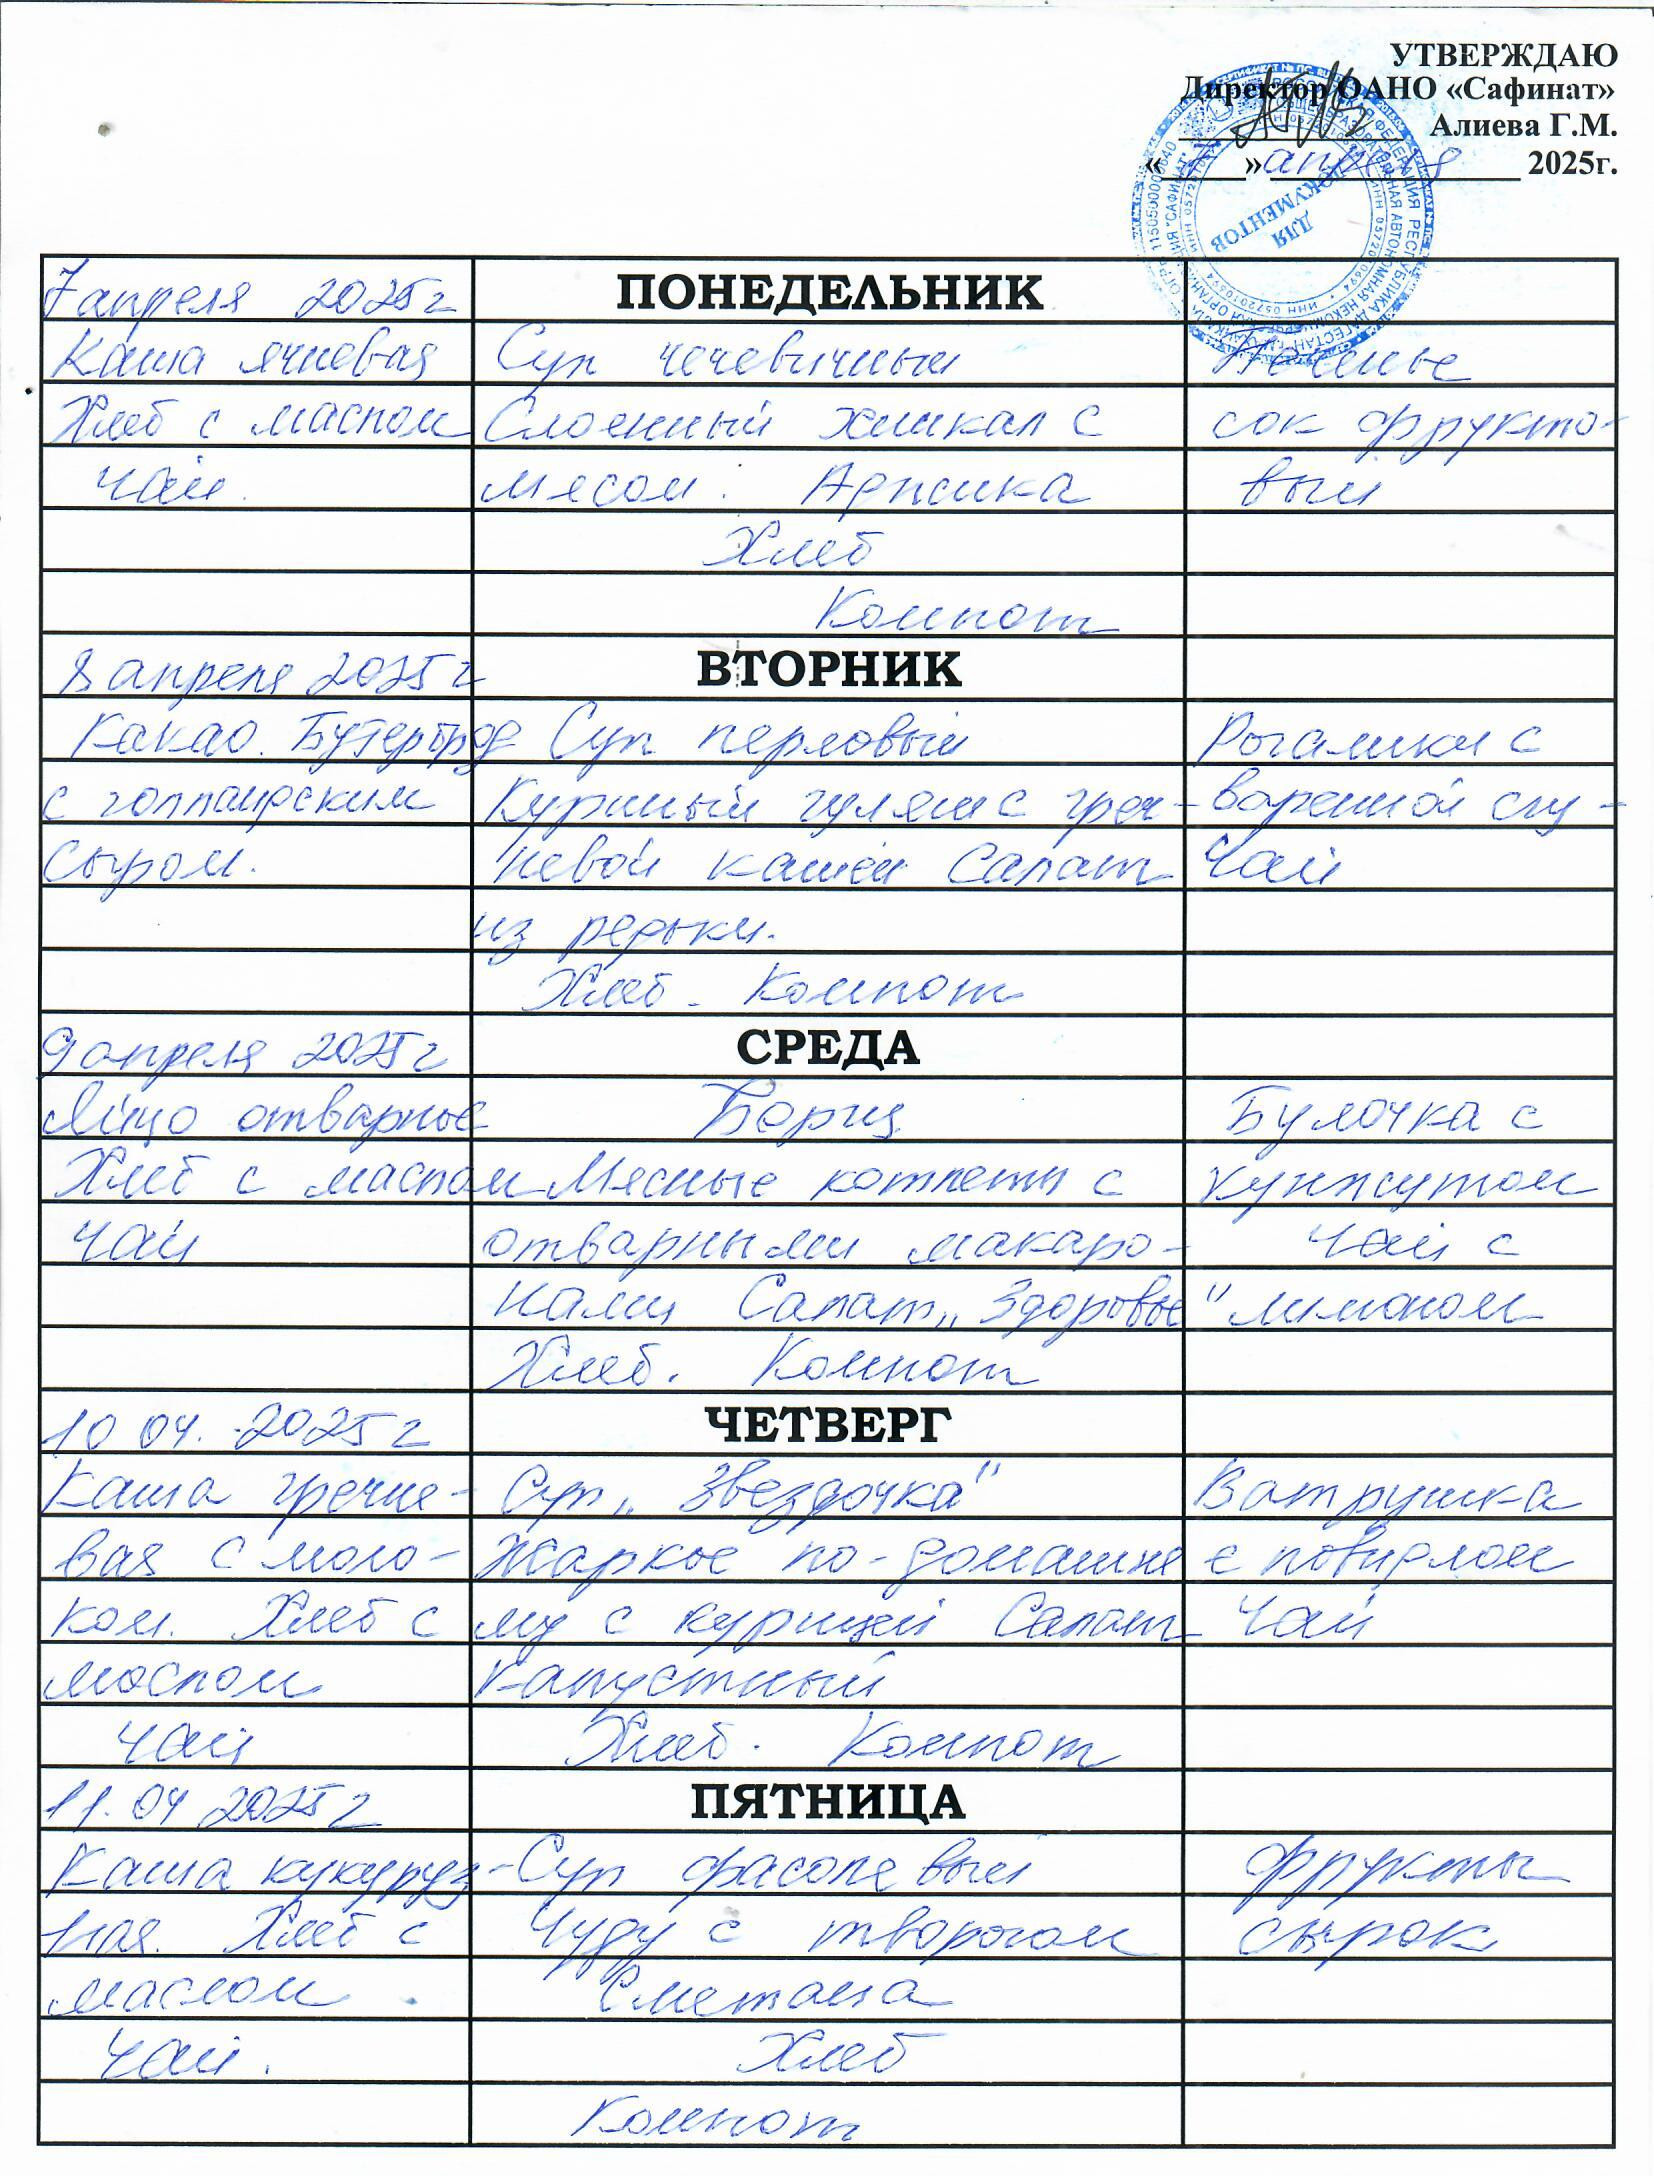 УТВЕРЖДАЮ
Директор ОАНО «Сафинат»
Алиева Г.М.
« » апреля 2025г.
ДЛЯ ДОКУМЕНТОВ
7 апреля 2025г ПОНЕДЕЛЬНИК
Каша ячневая Суп чечевичный Печенье
Хлеб с маслом Слоенный хинкал с сок фрукто-
чай. мясом. Аджика вый
Хлеб
Компот
8 апреля 2025г ВТОРНИК
Какао. Бутерброд Суп перловый Рогалики с
с голландским Куриный гуляш с греч- варенной сгу-
сыром. невой кашей Салат Чай
из редьки.
Хлеб. Компот
9 апреля 2025г СРЕДА
Яйцо отварное Борщ Булочка с
Хлеб с маслом Мясные котлеты с кунжутом
чай отварными макаро- чай с
нами Салат „Здоровье" лимоном
Хлеб. Компот
10 04. 2025г ЧЕТВЕРГ
Каша гречне- Суп „Звездочка" Ватрушка
вая с моло- Жаркое по-домашне с повидлом
ком. Хлеб с му с курицей Салат Чай
маслом капустный
чай Хлеб. Компот
11.04 2025г ПЯТНИЦА
Каша кукуруз- Суп фасолевый фрукты
ная. Хлеб с Чуду с творогом сырок
маслом Сметана
Чай. Хлеб
Компот